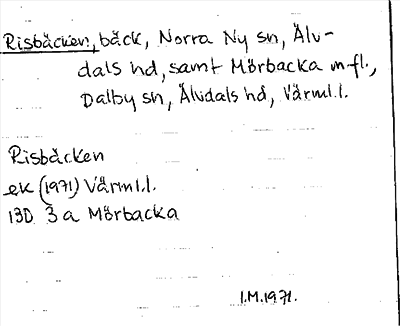 Risbäcken, bäck, Norra Ny sn, Älv-
dals hd, samt Mörbacka m fl.,
Dalby sn, Älvdals hd, Värml.l.
Risbäcken
ek (1971) Värml.l.
13D 3a Mörbacka
I.M.1971.